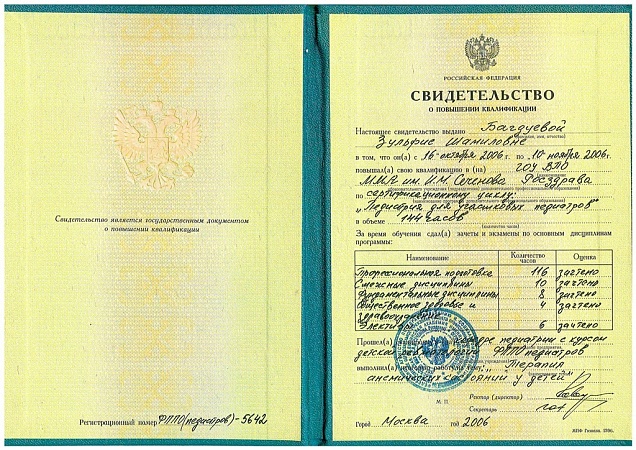 Свидетельство является государственным документом
о повышении квалификации
Регистрационный номер ФППО(педиатров)-5642
РОССИЙСКАЯ ФЕДЕРАЦИЯ
СВИДЕТЕЛЬСТВО
О ПОВЫШЕНИИ КВАЛИФИКАЦИИ
Настоящее свидетельство выдано Багдуевой
(фамилия, имя, отчество)
Зульфие Шамиловне
в том, что он(а) с 16 октября 2006 г. по 10 ноября 2006 г.
повышал(а) свою квалификацию в (на) ГОУ ВПО
ММА им. И.М. Сеченова Росздрава
по сертификационному циклу:
„Педиатрия для участковых педиатров"
в объеме 144 часов
(количество часов)
За время обучения сдал(а) зачеты и экзамены по основным дисциплинам
программы:
Наименование Количество часов Оценка
Профессиональная подготовка 116 зачтено
Смежные дисциплины 10 зачтено
Фундаментальные дисциплины 8 зачтено
Общественное здоровье и 4 зачтено
здравоохранение
6 зачтено
Прошел(а) кафедре педиатрии с курсом
ФППО педиатров
выполнил(а) „Терапия
анемических состояний у детей"
Ректор (директор)
М. П.
Секретарь
Город Москва год 2006